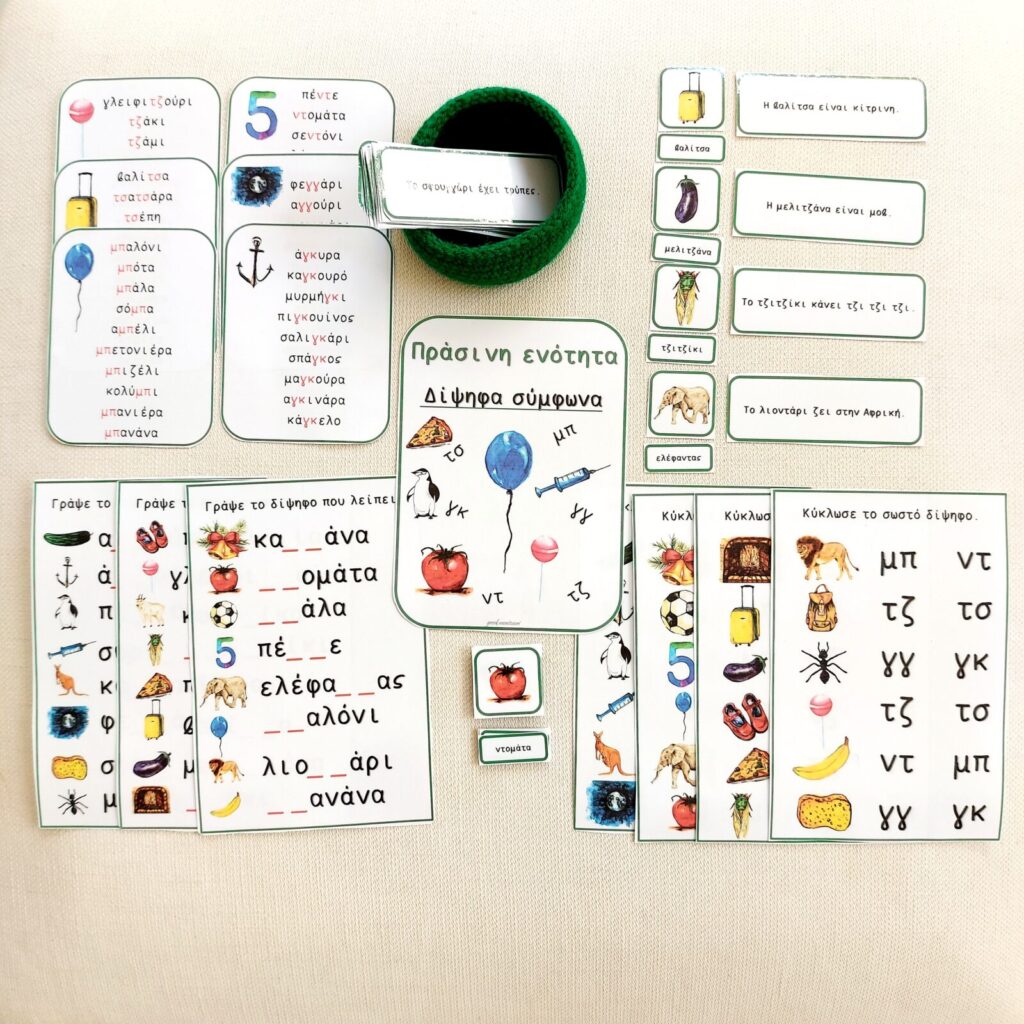 γλειφιτζούρι
τζάκι
τζάμι
5
πέντε
ντομάτα
σεντόνι
βαλίτσα
τσατσάρα
τσέπη
φεγγάρι
αγγούρι
μπαλόνι
μπότα
μπάλα
σόμπα
αμπέλι
μπετονιέρα
μπιζέλι
κολύμπι
μπανιέρα
μπανάνα
άγκυρα
καγκουρό
μυρμήγκι
πιγκουίνος
σαλιγκάρι
σπάγκος
μαγκούρα
αγκινάρα
κάγκελο
Το σφουγγάρι έχει τρύπες.
βαλίτσα
Η βαλίτσα είναι κίτρινη.
μελιτζάνα
Η μελιτζάνα είναι μοβ.
τζιτζίκι
Το τζιτζίκι κάνει τζι τζι τζι.
ελέφαντας
Το λιοντάρι ζει στην Αφρική.
Πράσινη ενότητα
Δίψηφα σύμφωνα
τσ
μπ
γκ
γγ
ντ
τζ
ντομάτα
Γράψε το δίψηφ
α_
ά_
π
σ
κ
φ
σ
μ
Γράψε τ
γλ
Γράψε το δίψηφο που λείπει
κα_ _άνα
_ _ομάτα
_ _άλα
5 πέ_ _ε
ελέφα_ _ας
_ _αλόνι
λιο_ _άρι
_ _ανάνα
Κύκλω
5
Κύκλωσ
Κύκλωσε το σωστό δίψηφο.
μπ ντ
τζ τσ
γγ γκ
τζ τσ
ντ μπ
γγ γκ